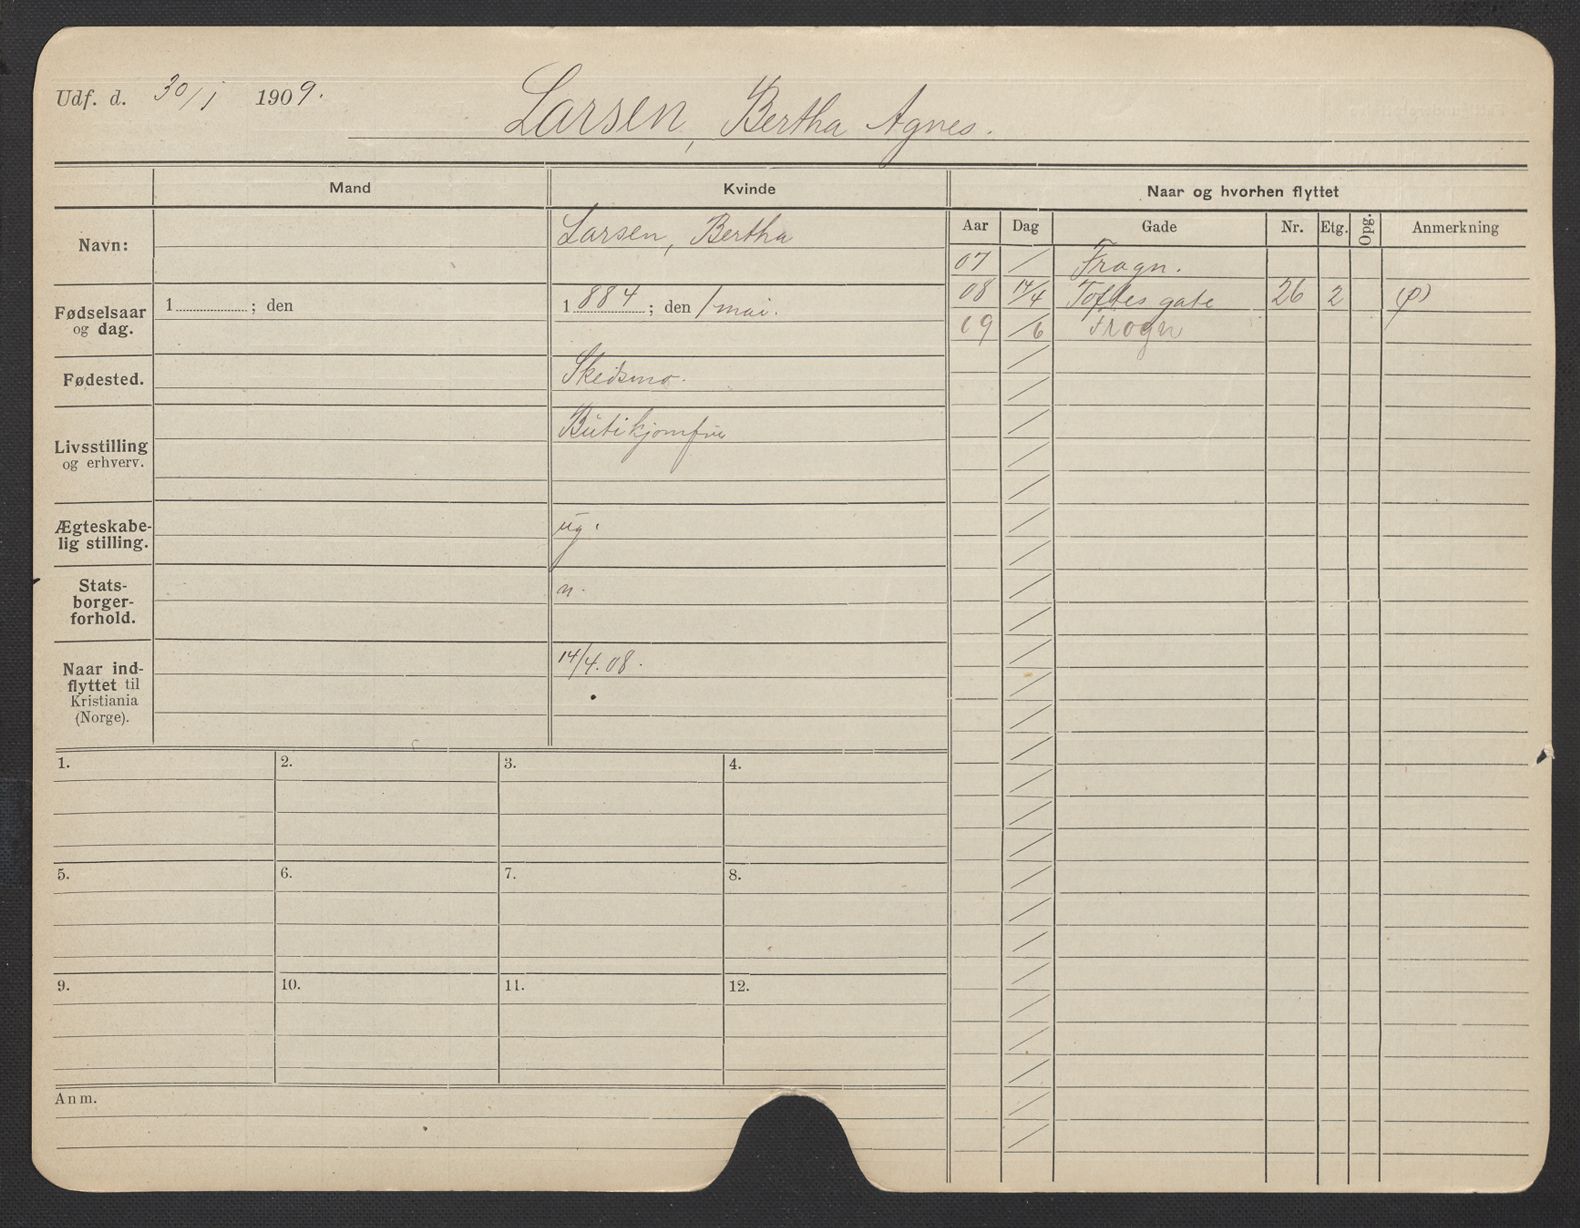 Udf. d. 30/1 1909.
Larsen, Bertha Agnes.
Mand
Kvinde
Naar og hvorhen flyttet
Navn:
Larsen, Bertha
Fødselsaar
og dag.
1 ; den
1884; den 1 mai.
Fødested.
Skedsmo.
Livsstilling
og erhverv.
Butikjomfru
Ægteskabe-
lig stilling.
ug.
Stats-
borger-
forhold.
n.
Naar ind-
flyttet til
Kristiania
(Norge).
14/4.08.
Aar Dag Gade Nr. Etg. Opg. Anmerkning
07 / Frogn.
08 14/4 Toftes gate 26 2
09 /6 Frogn
1. 2. 3. 4.
5. 6. 7. 8.
9. 10. 11. 12.
Anm.